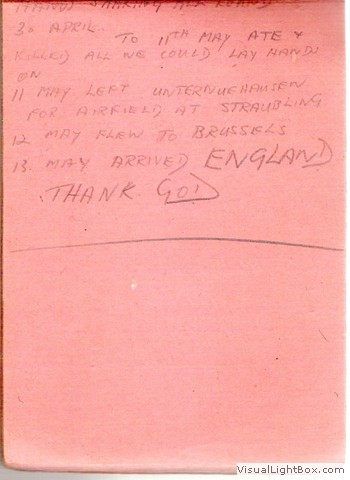 HANDS SHAKING ALL ROUND
30 APRIL.
TO 11TH MAY ATE &
KILLED ALL WE COULD LAY HANDS
ON
11 MAY LEFT UNTERNUEHAUSEN
FOR AIRFIELD AT STRAUBLING
12 MAY FLEW TO BRUSSELS
13. MAY ARRIVED ENGLAND
THANK GOD
VisualLightBox.com